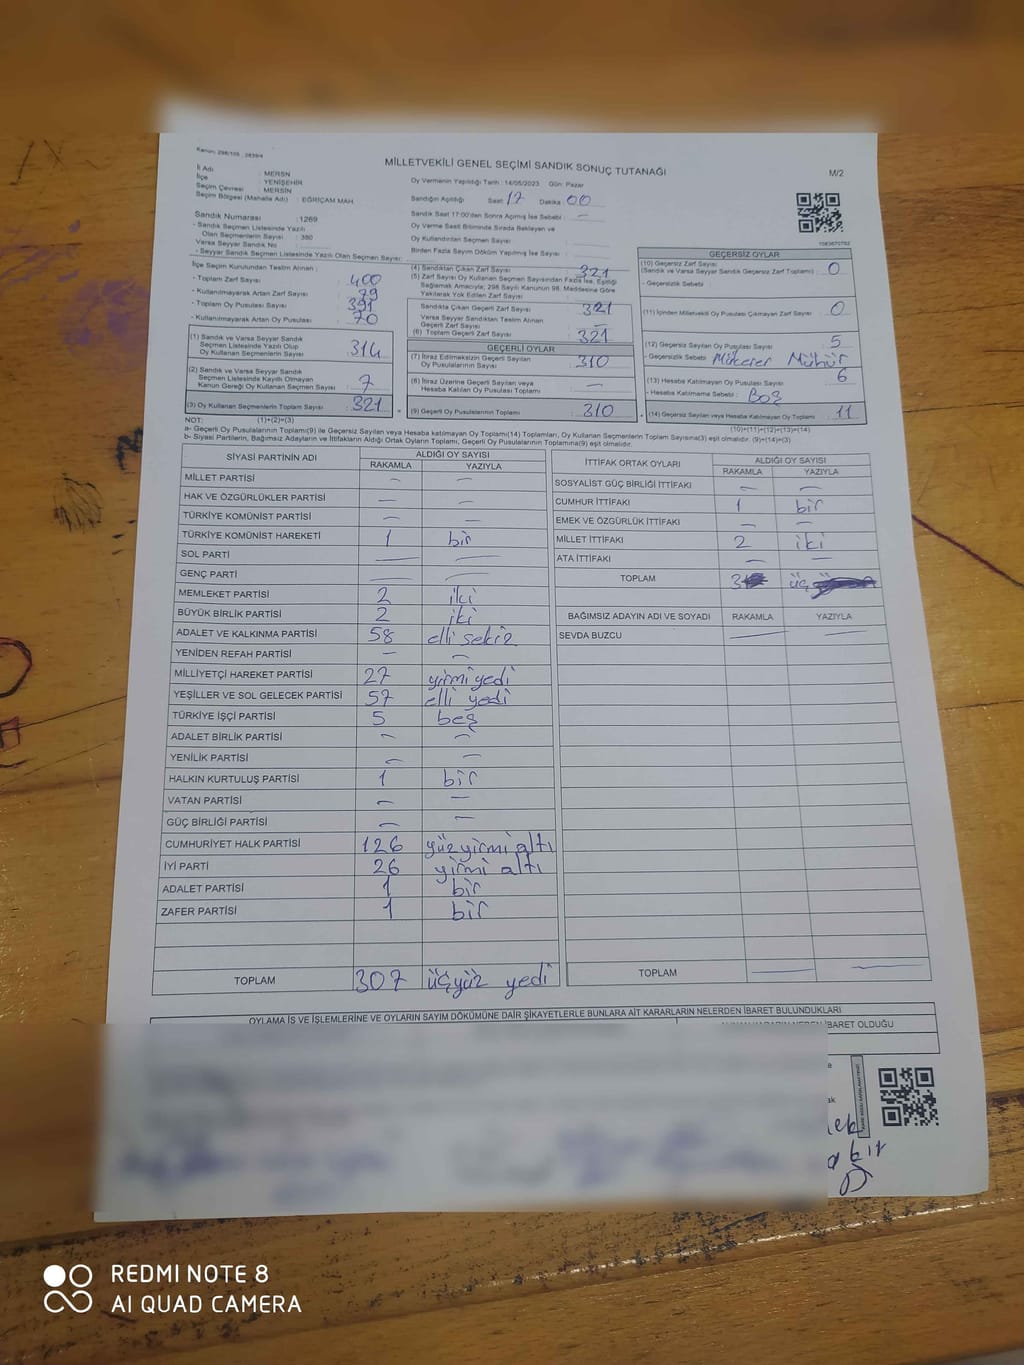 Kanun: 298/105 ; 2839/4
MİLLETVEKİLİ GENEL SEÇİMİ SANDIK SONUÇ TUTANAĞI
M/2
İl Adı : MERSN
İlçe : YENİŞEHİR
Seçim Çevresi : MERSİN
Seçim Bölgesi (Mahalle Adı) : EĞRİÇAM MAH.
Oy Vermenin Yapıldığı Tarih : 14/05/2023 Gün: Pazar
Sandığın Açıldığı Saat 17 Dakika 00
Sandık Saat 17:00'dan Sonra Açılmış İse Sebebi : —
Oy Verme Saati Bitiminde Sırada Bekleyen ve
Oy Kullandırılan Seçmen Sayısı :
Birden Fazla Sayım Döküm Yapılmış İse Sayısı :
Sandık Numarası : 1269
- Sandık Seçmen Listesinde Yazılı
Olan Seçmenlerin Sayısı : 380
Varsa Seyyar Sandık No :
- Seyyar Sandık Seçmen Listesinde Yazılı Olan Seçmen Sayısı:
İlçe Seçim Kurulundan Teslim Alınan :
- Toplam Zarf Sayısı : 400
- Kullanılmayarak Artan Zarf Sayısı : 79
- Toplam Oy Pusulası Sayısı : 391
- Kullanılmayarak Artan Oy Pusulası : 70
(1) Sandık ve Varsa Seyyar Sandık
Seçmen Listesinde Yazılı Olup
Oy Kullanan Seçmenlerin Sayısı : 314
(2) Sandık ve Varsa Seyyar Sandık
Seçmen Listesinde Kayıtlı Olmayan
Kanun Gereği Oy Kullanan Seçmen Sayısı : 7
(3) Oy Kullanan Seçmenlerin Toplam Sayısı : 321
(4) Sandıktan Çıkan Zarf Sayısı : 321
(5) Zarf Sayısı Oy Kullanan Seçmen Sayısından Fazla İse, Eşitliği
Sağlamak Amacıyla; 298 Sayılı Kanunun 98. Maddesine Göre
Yakılarak Yok Edilen Zarf Sayısı :
Sandıkta Çıkan Geçerli Zarf Sayısı : 321
Varsa Seyyar Sandıktan Teslim Alınan
Geçerli Zarf Sayısı : —
(6) Toplam Geçerli Zarf Sayısı : 321
GEÇERLİ OYLAR
(7) İtiraz Edilmeksizin Geçerli Sayılan
Oy Pusulalarının Sayısı : 310
(8) İtiraz Üzerine Geçerli Sayılan veya
Hesaba Katılan Oy Pusulası Toplamı : —
(9) Geçerli Oy Pusulalarının Toplamı : 310
1083670792
GEÇERSİZ OYLAR
(10) Geçersiz Zarf Sayısı
(Sandık ve Varsa Seyyar Sandık Geçersiz Zarf Toplamı) : 0
- Geçersizlik Sebebi :
(11) İçinden Milletvekili Oy Pusulası Çıkmayan Zarf Sayısı : 0
(12) Geçersiz Sayılan Oy Pusulası Sayısı : 5
- Geçersizlik Sebebi : Mükerer Mühür
(13) Hesaba Katılmayan Oy Pusulası Sayısı : 6
- Hesaba Katılmama Sebebi : Boş
(14) Geçersiz Sayılan veya Hesaba Katılmayan Oy Toplamı : 11
NOT: (1)+(2)=(3)
(10)+(11)+(12)+(13)=(14)
a- Geçerli Oy Pusulalarının Toplamı(9) ile Geçersiz Sayılan veya Hesaba katılmayan Oy Toplamı(14) Toplamları, Oy Kullanan Seçmenlerin Toplam Sayısına(3) eşit olmalıdır. (9)+(14)=(3)
b- Siyasi Partilerin, Bağımsız Adayların ve İttifakların Aldığı Ortak Oyların Toplamı, Geçerli Oy Pusulalarının Toplamına(9) eşit olmalıdır.
SİYASİ PARTİNİN ADI ALDIĞI OY SAYISI
RAKAMLA YAZIYLA
MİLLET PARTİSİ — —
HAK VE ÖZGÜRLÜKLER PARTİSİ — —
TÜRKİYE KOMÜNİST PARTİSİ — —
TÜRKİYE KOMÜNİST HAREKETİ 1 bir
SOL PARTİ — —
GENÇ PARTİ — —
MEMLEKET PARTİSİ 2 iki
BÜYÜK BİRLİK PARTİSİ 2 iki
ADALET VE KALKINMA PARTİSİ 58 elli sekiz
YENİDEN REFAH PARTİSİ — —
MİLLİYETÇİ HAREKET PARTİSİ 27 yirmi yedi
YEŞİLLER VE SOL GELECEK PARTİSİ 57 elli yedi
TÜRKİYE İŞÇİ PARTİSİ 5 beş
ADALET BİRLİK PARTİSİ — —
YENİLİK PARTİSİ — —
HALKIN KURTULUŞ PARTİSİ 1 bir
VATAN PARTİSİ — —
GÜÇ BİRLİĞİ PARTİSİ — —
CUMHURİYET HALK PARTİSİ 126 yüz yirmi altı
İYİ PARTİ 26 yirmi altı
ADALET PARTİSİ 1 bir
ZAFER PARTİSİ 1 bir
TOPLAM 307 üçyüz yedi
İTTİFAK ORTAK OYLARI ALDIĞI OY SAYISI
RAKAMLA YAZIYLA
SOSYALİST GÜÇ BİRLİĞİ İTTİFAKI — —
CUMHUR İTTİFAKI 1 bir
EMEK VE ÖZGÜRLÜK İTTİFAKI — —
MİLLET İTTİFAKI 2 iki
ATA İTTİFAKI — —
TOPLAM 3 üç
BAĞIMSIZ ADAYIN ADI VE SOYADI RAKAMLA YAZIYLA
SEVDA BUZCU — —
TOPLAM — —
OYLAMA İŞ VE İŞLEMLERİNE VE OYLARIN SAYIM DÖKÜMÜNE DAİR ŞİKAYETLERLE BUNLARA AİT KARARLARIN NELERDEN İBARET BULUNDUKLARI
İBARET OLDUĞU
REDMI NOTE 8
AI QUAD CAMERA